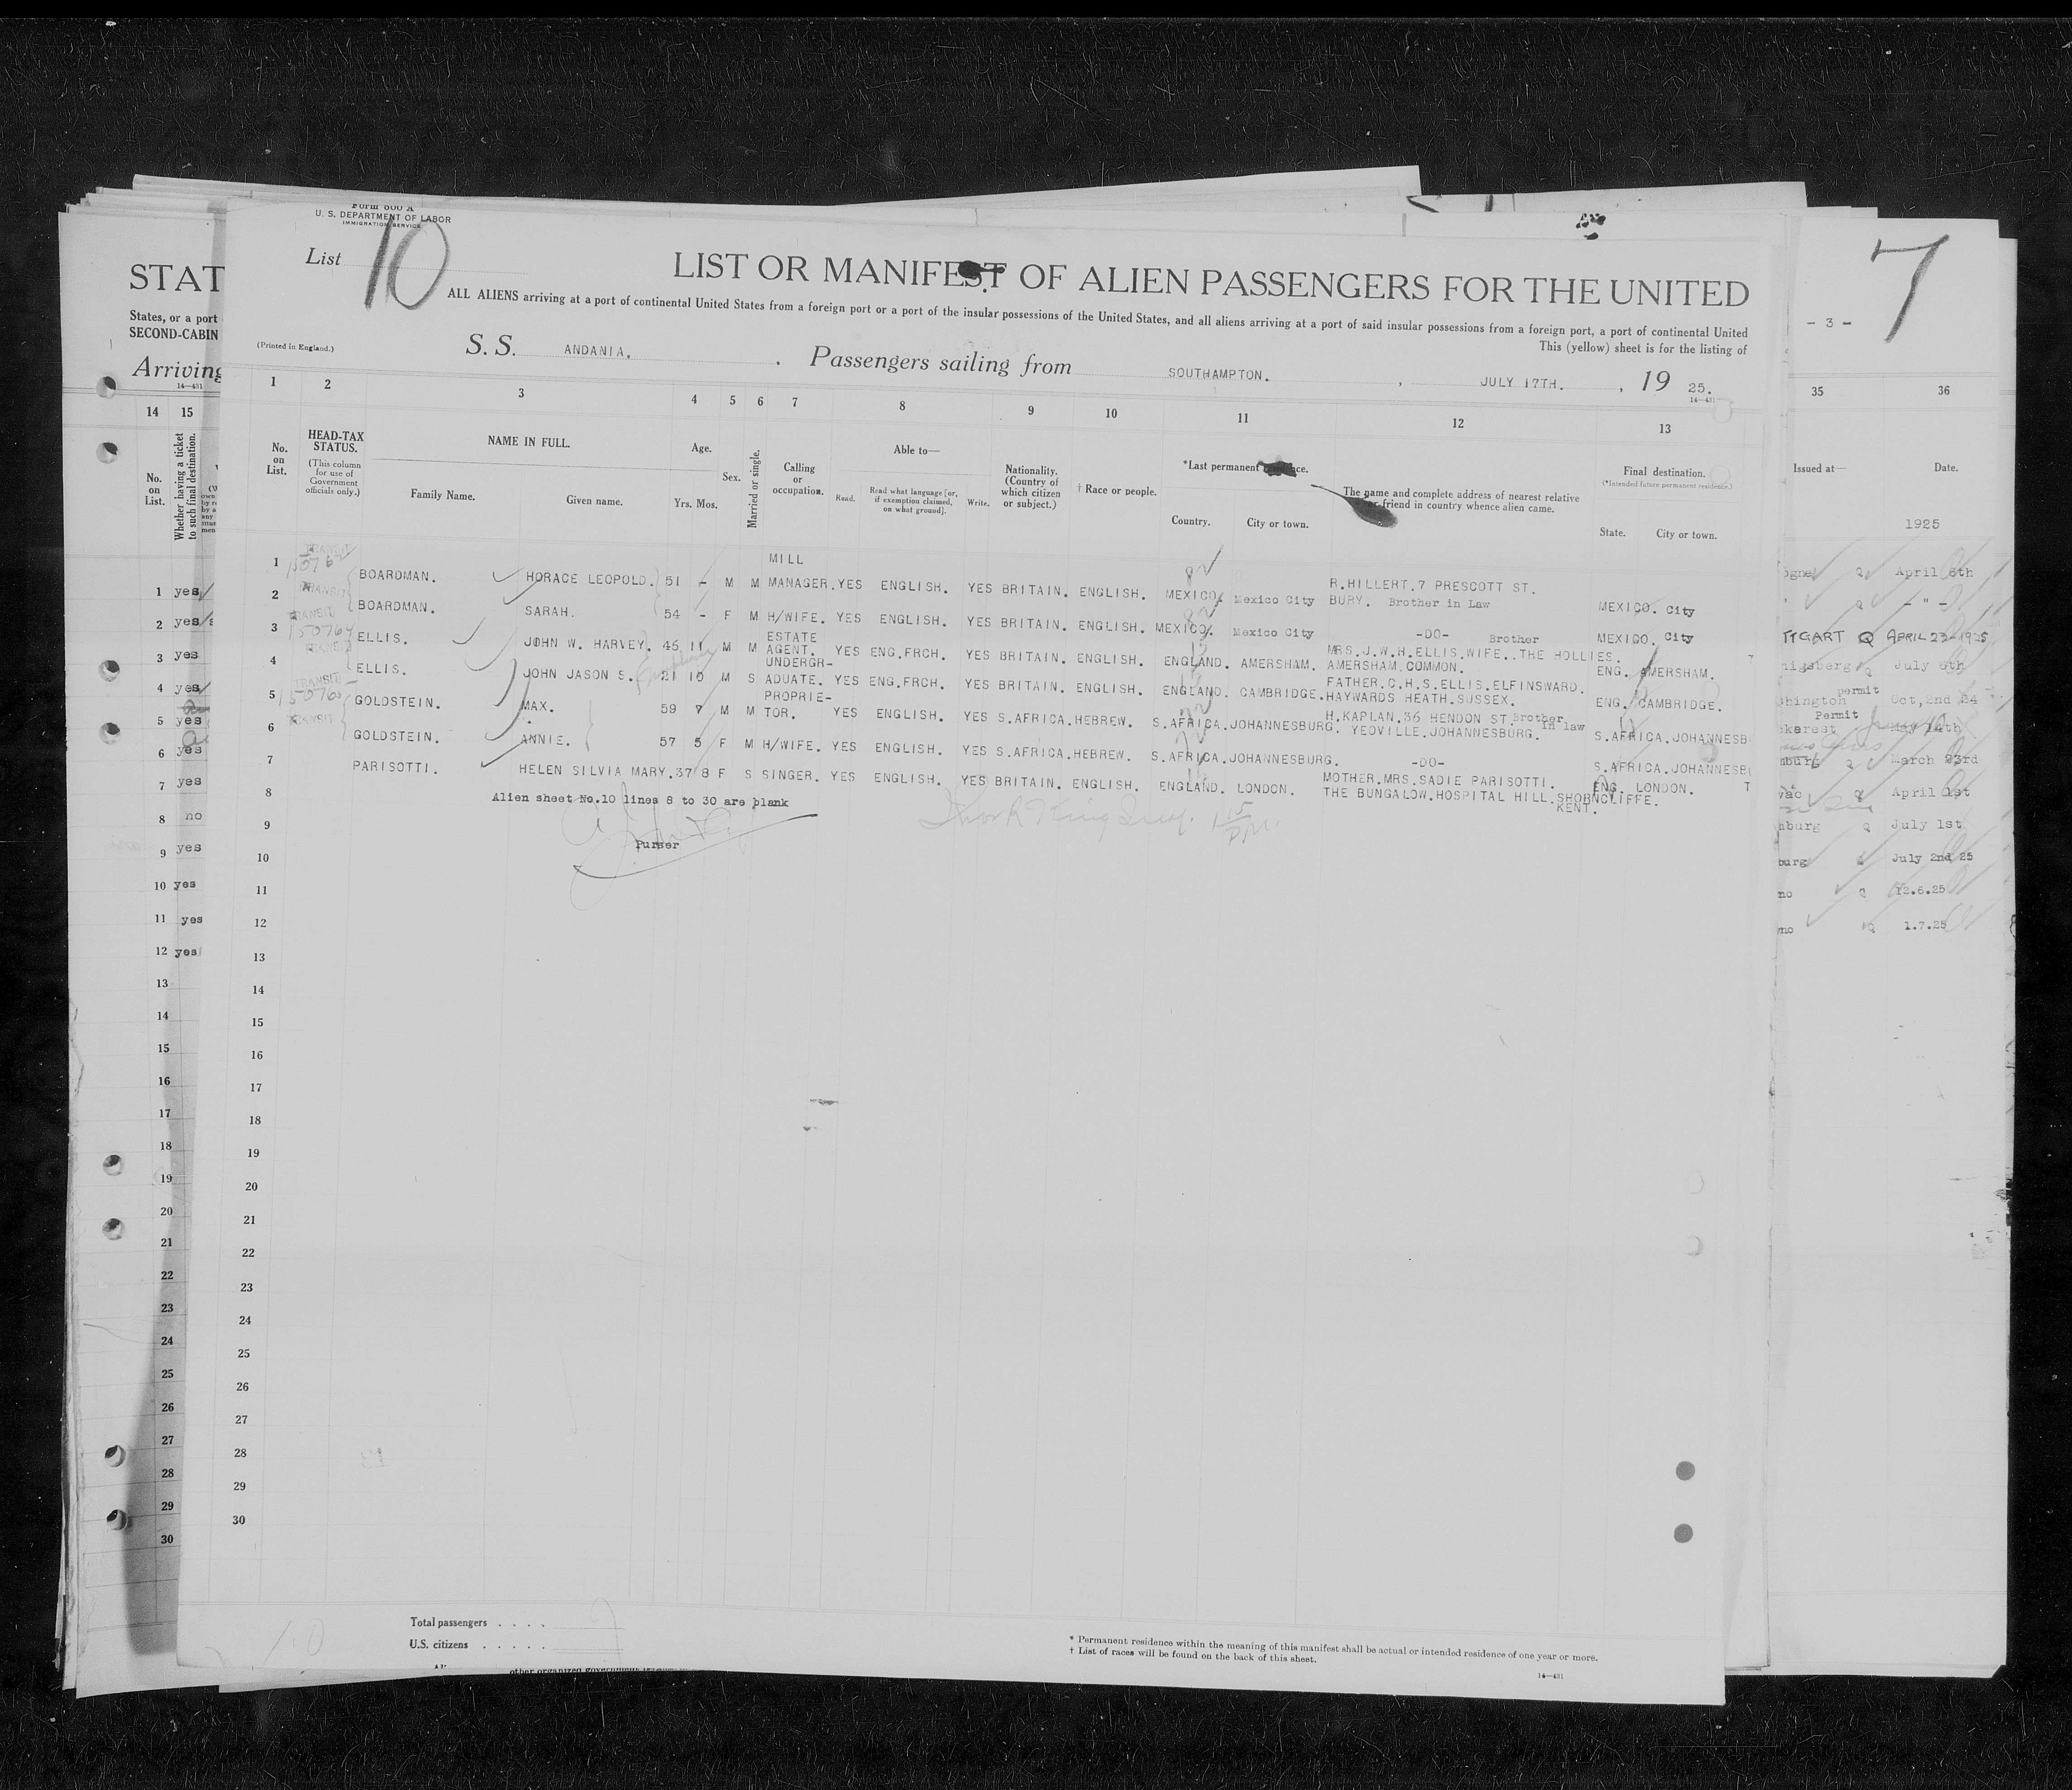 Form 600 A
U. S. DEPARTMENT OF LABOR
IMMIGRATION SERVICE
List 10
LIST OR MANIFEST OF ALIEN PASSENGERS FOR THE UNITED
ALL ALIENS arriving at a port of continental United States from a foreign port or a port of the insular possessions of the United States, and all aliens arriving at a port of said insular possessions from a foreign port, a port of continental United
This (yellow) sheet is for the listing of
(Printed in England.)
S. S. ANDANIA. . Passengers sailing from SOUTHAMPTON. , JULY 17TH. , 19 25.
14—431
1 2 3 4 5 6 7 8 9 10 11 12 13
No. on List.
HEAD-TAX STATUS.
(This column for use of Government officials only.)
NAME IN FULL.
Family Name. Given name.
Age.
Yrs. Mos.
Sex.
Married or single.
Calling or occupation.
Able to—
Read. Read what language [or, if exemption claimed, on what ground]. Write.
Nationality. (Country of which citizen or subject.)
† Race or people.
*Last permanent residence.
Country. City or town.
The name and complete address of nearest relative or friend in country whence alien came.
Final destination.
(*Intended future permanent residence.)
State. City or town.
1 TRANSIT BOARDMAN. HORACE LEOPOLD. 51 - M M MILL MANAGER. YES ENGLISH. YES BRITAIN. ENGLISH. MEXICO. Mexico City R.HILLERT.7 PRESCOTT ST. BURY. Brother in Law MEXICO. City
2 TRANSIT BOARDMAN. SARAH. 54 - F M H/WIFE. YES ENGLISH. YES BRITAIN. ENGLISH. MEXICO. Mexico City -DO- Brother MEXICO. City
3 TRANSIT 150764 ELLIS. JOHN W. HARVEY. 46 11 M M ESTATE AGENT. YES ENG.FRCH. YES BRITAIN. ENGLISH. ENGLAND. AMERSHAM. MRS.J.W.H.ELLIS.WIFE..THE HOLLIES. AMERSHAM.COMMON. ENG. AMERSHAM.
4 TRANSIT ELLIS. JOHN JASON S. 21 10 M S UNDERGR-ADUATE. YES ENG.FRCH. YES BRITAIN. ENGLISH. ENGLAND. CAMBRIDGE. FATHER.C.H.S.ELLIS.ELFINSWARD. HAYWARDS HEATH.SUSSEX. ENG. CAMBRIDGE.
5 TRANSIT 150765 GOLDSTEIN. MAX. 59 7 M M PROPRIE-TOR. YES ENGLISH. YES S.AFRICA. HEBREW. S.AFRICA. JOHANNESBURG. H.KAPLAN.36 HENDON ST. Brother in law YEOVILLE.JOHANNESBURG. S.AFRICA.JOHANNESB
6 TRANSIT GOLDSTEIN. ANNIE. 57 5 F M H/WIFE. YES ENGLISH. YES S.AFRICA. HEBREW. S.AFRICA. JOHANNESBURG. -DO- S.AFRICA.JOHANNESB
7 PARISOTTI. HELEN SILVIA MARY. 37 8 F S SINGER. YES ENGLISH. YES BRITAIN. ENGLISH. ENGLAND. LONDON. MOTHER.MRS.SADIE PARISOTTI. THE BUNGALOW.HOSPITAL HILL.SHORNCLIFFE. KENT. ENG. LONDON.
8 Alien sheet No.10 lines 8 to 30 are blank
9 Purser
10
11
12
13
14
15
16
17
18
19
20
21
22
23
24
25
26
27
28
29
30
10
Total passengers . . . .
U.S. citizens . . . . .
* Permanent residence within the meaning of this manifest shall be actual or intended residence of one year or more.
† List of races will be found on the back of this sheet.
14—431
STAT
States, or a port
SECOND-CABIN
Arriving
14—431
14 15
No. on List.
Whether having a ticket to such final destination.
1 yes
2 yes
3 yes
4 yes
5 yes
6 yes
7 yes
8 no
9 yes
10 yes
11 yes
12 yes
13
14
15
16
17
18
19
20
21
22
23
24
25
26
27
28
29
30
- 3 -
7
35 36
Issued at— Date.
1925
ogne Q April 6th
" Q - " -
TTGART Q APRIL 23-1925
nigsberg Q July 6th
permit
shington Oct,2nd 24
Permit
karest May 14th
mburg Q March 23rd
vac Q April 1st
mburg Q July 1st
burg Q July 2nd 25
no Q 12.6.25
no Q 1.7.25